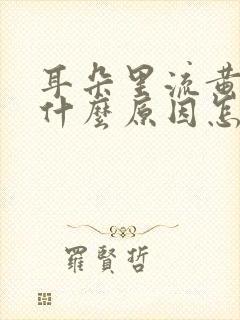 耳朵里流黄
什麽原因怎
羅賢哲